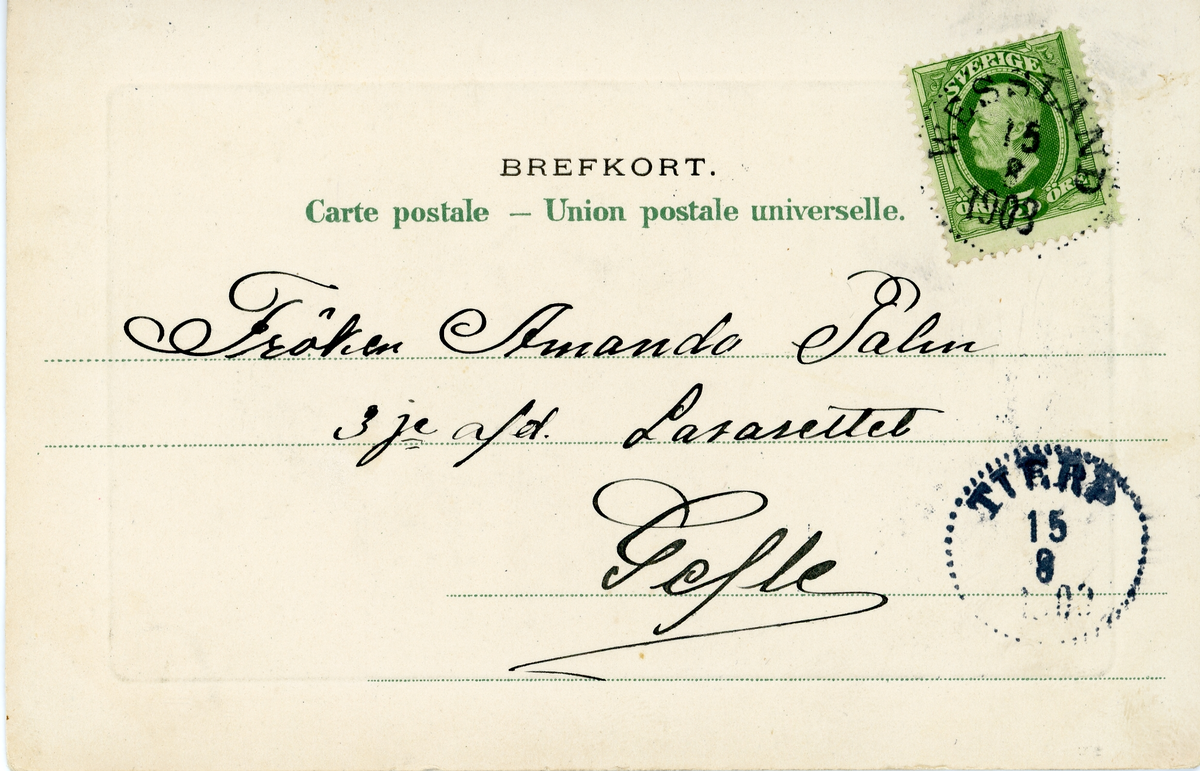 BREFKORT.
Carte postale — Union postale universelle.
SVERIGE
HESSLAND
15
8
1903
Fröken Amanda Palm
3je afd. Lasarettet
Gefle
TIERP
15
8
1903